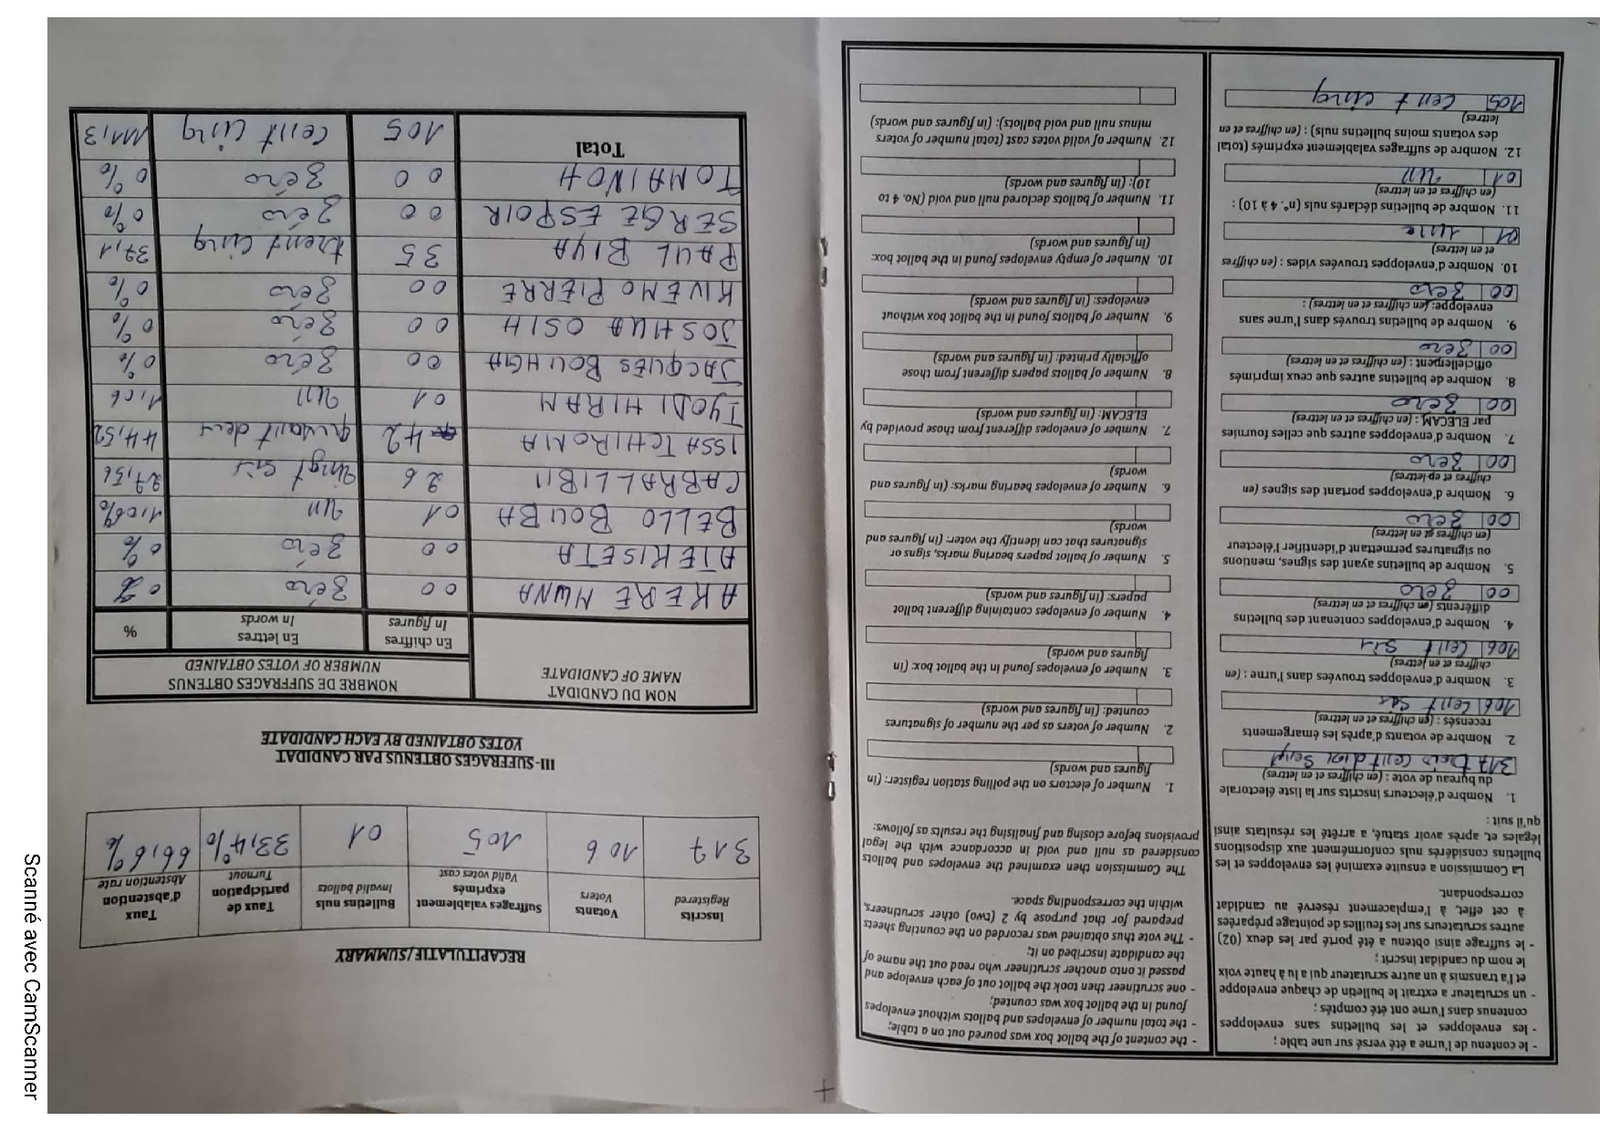 - le contenu de l'urne a été versé sur une table ;
- les enveloppes et les bulletins sans enveloppes
contenus dans l'urne ont été comptés ;
- un scrutateur a extrait le bulletin de chaque enveloppe
et l'a transmis à un autre scrutateur qui a lu à haute voix
le nom du candidat inscrit ;
- le suffrage ainsi obtenu a été porté par les deux (02)
autres scrutateurs sur les feuilles de pointage préparées
à cet effet, à l'emplacement réservé au candidat
correspondant.
La Commission a ensuite examiné les enveloppes et les
bulletins considérés nuls conformément aux dispositions
légales et, après avoir statué, a arrêté les résultats ainsi
qu'il suit :
1. Nombre d'électeurs inscrits sur la liste électorale
du bureau de vote : (en chiffres et en lettres)
317 trois cent dix sept
2. Nombre de votants d'après les émargements
recensés : (en chiffres et en lettres)
106 cent six
3. Nombre d'enveloppes trouvées dans l'urne : (en
chiffres et en lettres)
106 cent six
4. Nombre d'enveloppes contenant des bulletins
différents (en chiffres et en lettres)
00 zéro
5. Nombre de bulletins ayant des signes, mentions
ou signatures permettant d'identifier l'électeur
(en chiffres et en lettres)
00 zéro
6. Nombre d'enveloppes portant des signes (en
chiffres et en lettres)
00 zéro
7. Nombre d'enveloppes autres que celles fournies
par ELECAM : (en chiffres et en lettres)
00 zéro
8. Nombre de bulletins autres que ceux imprimés
officiellement : (en chiffres et en lettres)
00 zéro
9. Nombre de bulletins trouvés dans l'urne sans
enveloppe: (en chiffres et en lettres) :
00 zéro
10. Nombre d'enveloppes trouvées vides : (en chiffres
et en lettres)
01 une
11. Nombre de bulletins déclarés nuls (n°. 4 à 10) :
(en chiffres et en lettres)
01 un
12. Nombre de suffrages valablement exprimés (total
des votants moins bulletins nuls) : (en chiffres et en
lettres)
105 cent cinq
- the content of the ballot box was poured out on a table;
- the total number of envelopes and ballots without envelopes
found in the ballot box was counted;
- one scrutineer then took the ballot out of each envelope and
passed it onto another scrutineer who read out the name of
the candidate inscribed on it;
- The vote thus obtained was recorded on the counting sheets
prepared for that purpose by 2 (two) other scrutineers,
within the corresponding space.
The Commission then examined the envelopes and ballots
considered as null and void in accordance with the legal
provisions before closing and finalising the results as follows:
1. Number of electors on the polling station register: (in
figures and words)
2. Number of voters as per the number of signatures
counted: (in figures and words)
3. Number of envelopes found in the ballot box: (in
figures and words)
4. Number of envelopes containing different ballot
papers: (in figures and words)
5. Number of ballot papers bearing marks, signs or
signatures that can identify the voter: (in figures and
words)
6. Number of envelopes bearing marks: (in figures and
words)
7. Number of envelopes different from those provided by
ELECAM: (in figures and words)
8. Number of ballots papers different from those
officially printed: (in figures and words)
9. Number of ballots found in the ballot box without
envelopes: (in figures and words)
10. Number of empty envelopes found in the ballot box:
(in figures and words)
11. Number of ballots declared null and void (No. 4 to
10): (in figures and words)
12. Number of valid votes cast (total number of voters
minus null and void ballots): (in figures and words)
RECAPITULATIF/SUMMARY
Inscrits Registered | Votants Voters | Suffrages valablement exprimés Valid votes cast | Bulletins nuls Invalid ballots | Taux de participation Turnout | Taux d'abstention Abstention rate
317 | 106 | 105 | 01 | 33,4% | 66,6%
III-SUFFRAGES OBTENUS PAR CANDIDAT
VOTES OBTAINED BY EACH CANDIDATE
NOM DU CANDIDAT NAME OF CANDIDATE | NOMBRE DE SUFFRAGES OBTENUS NUMBER OF VOTES OBTAINED
En chiffres In figures | En lettres In words | %
AKERE MUNA | 00 | zéro | 0%
ATEKISETA | 00 | zéro | 0%
BELLO BOUBA | 01 | un | 1,06%
CABRAL LIBII | 26 | vingt six | 27,56
ISSA TCHIROMA | 42 | quarant deux | 44,52
IYODI HIRAM | 01 | un | 1,06
JACQUES BOUHGA | 00 | zéro | 0%
JOSHUA OSIH | 00 | zéro | 0%
KWEMO PIERRE | 00 | zéro | 0%
PAUL BIYA | 35 | trent cinq | 37,1
SERGE ESPOIR | 00 | zéro | 0%
TOMAINOH | 00 | zéro | 0%
Total | 105 | cent cinq | 111,3
Scanné avec CamScanner